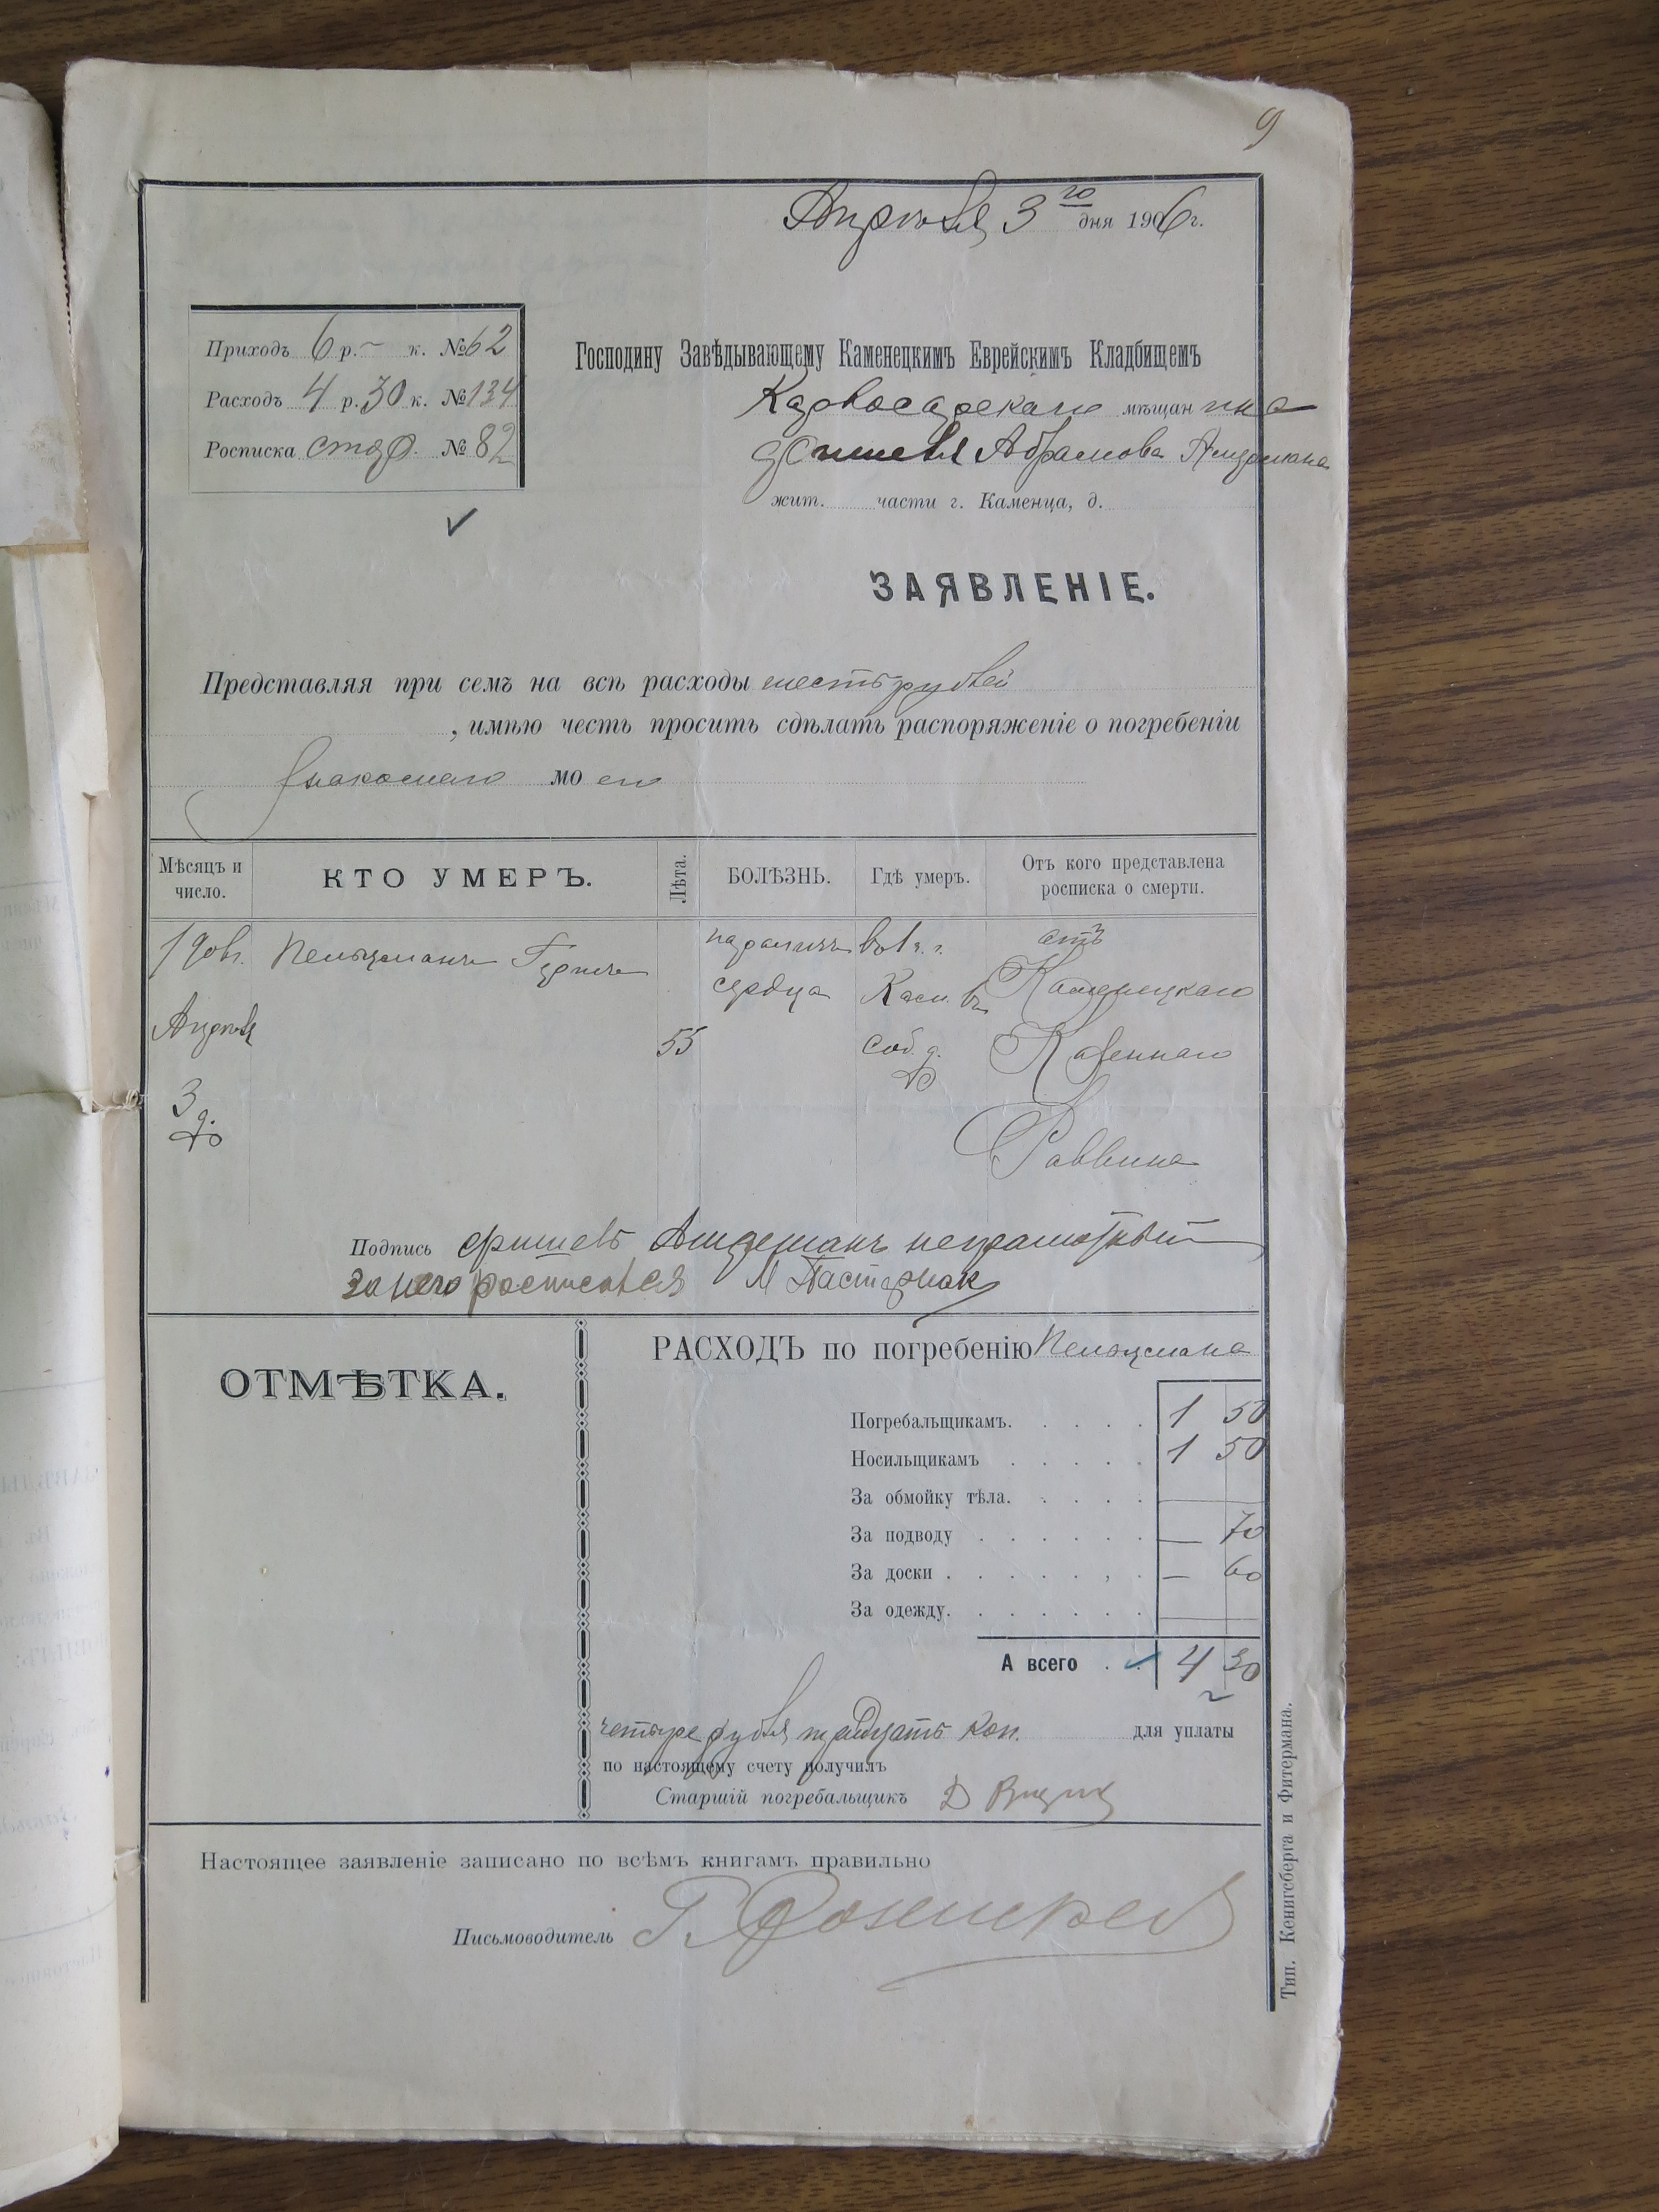 9
Апрѣля 3 го дня 1906 г.
Приходъ 6 р. — к. № 62
Расходъ 4 р. 30 к. № 134
Росписка стар. № 82
Господину Завѣдывающему Каменецкимъ Еврейскимъ Кладбищемъ
Карвосарскаго мѣщанина
Абрамова
жит. части г. Каменца, д.
ЗАЯВЛЕНІЕ.
Представляя при семъ на всѣ расходы шесть рублей
, имѣю честь просить сдѣлать распоряженіе о погребеніи
знакомаго моего
Мѣсяцъ и число.
КТО УМЕРЪ.
Лѣта.
БОЛѢЗНЬ.
Гдѣ умеръ.
Отъ кого представлена росписка о смерти.
190 г. Апрѣля 3 д.
55
параличъ сердца
въ г. Кам. въ соб. д.
отъ Каменецкаго Казеннаго Раввина
Подпись неграмотный
за него росписался М Пастернак
ОТМѢТКА.
РАСХОДЪ по погребенію
Погребальщикамъ. 1 50
Носильщикамъ 1 50
За обмойку тѣла.
За подводу — 70
За доски — 60
За одежду.
А всего 4 30
четыре рубля тридцать коп. для уплаты
по настоящему счету получилъ
Старшій погребальщикъ Д
Настоящее заявленіе записано по всѣмъ книгамъ правильно
Письмоводитель Г.
Тип. Кенигсберга и Фитермана.